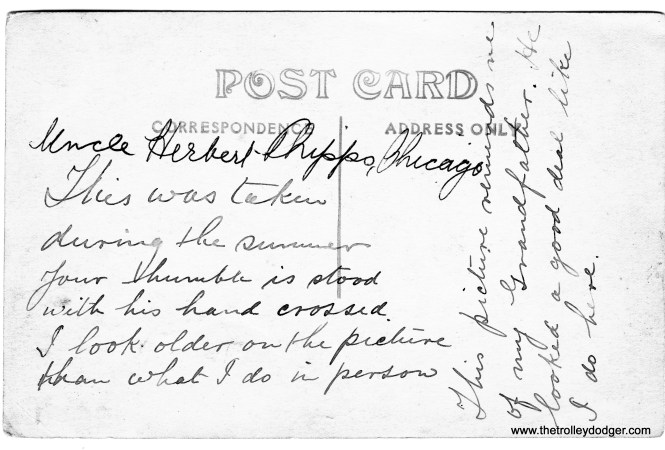 POST CARD
CORRESPONDENCE ADDRESS ONLY
Uncle Herbert Phipps, Chicago
This was taken
during the summer
your thumble is stood
with his hand crossed.
I look older on the picture
than what I do in person
This picture reminds me
of my Grandfather. He
looked a good deal like
I do here.
www.thetrolleydodger.com